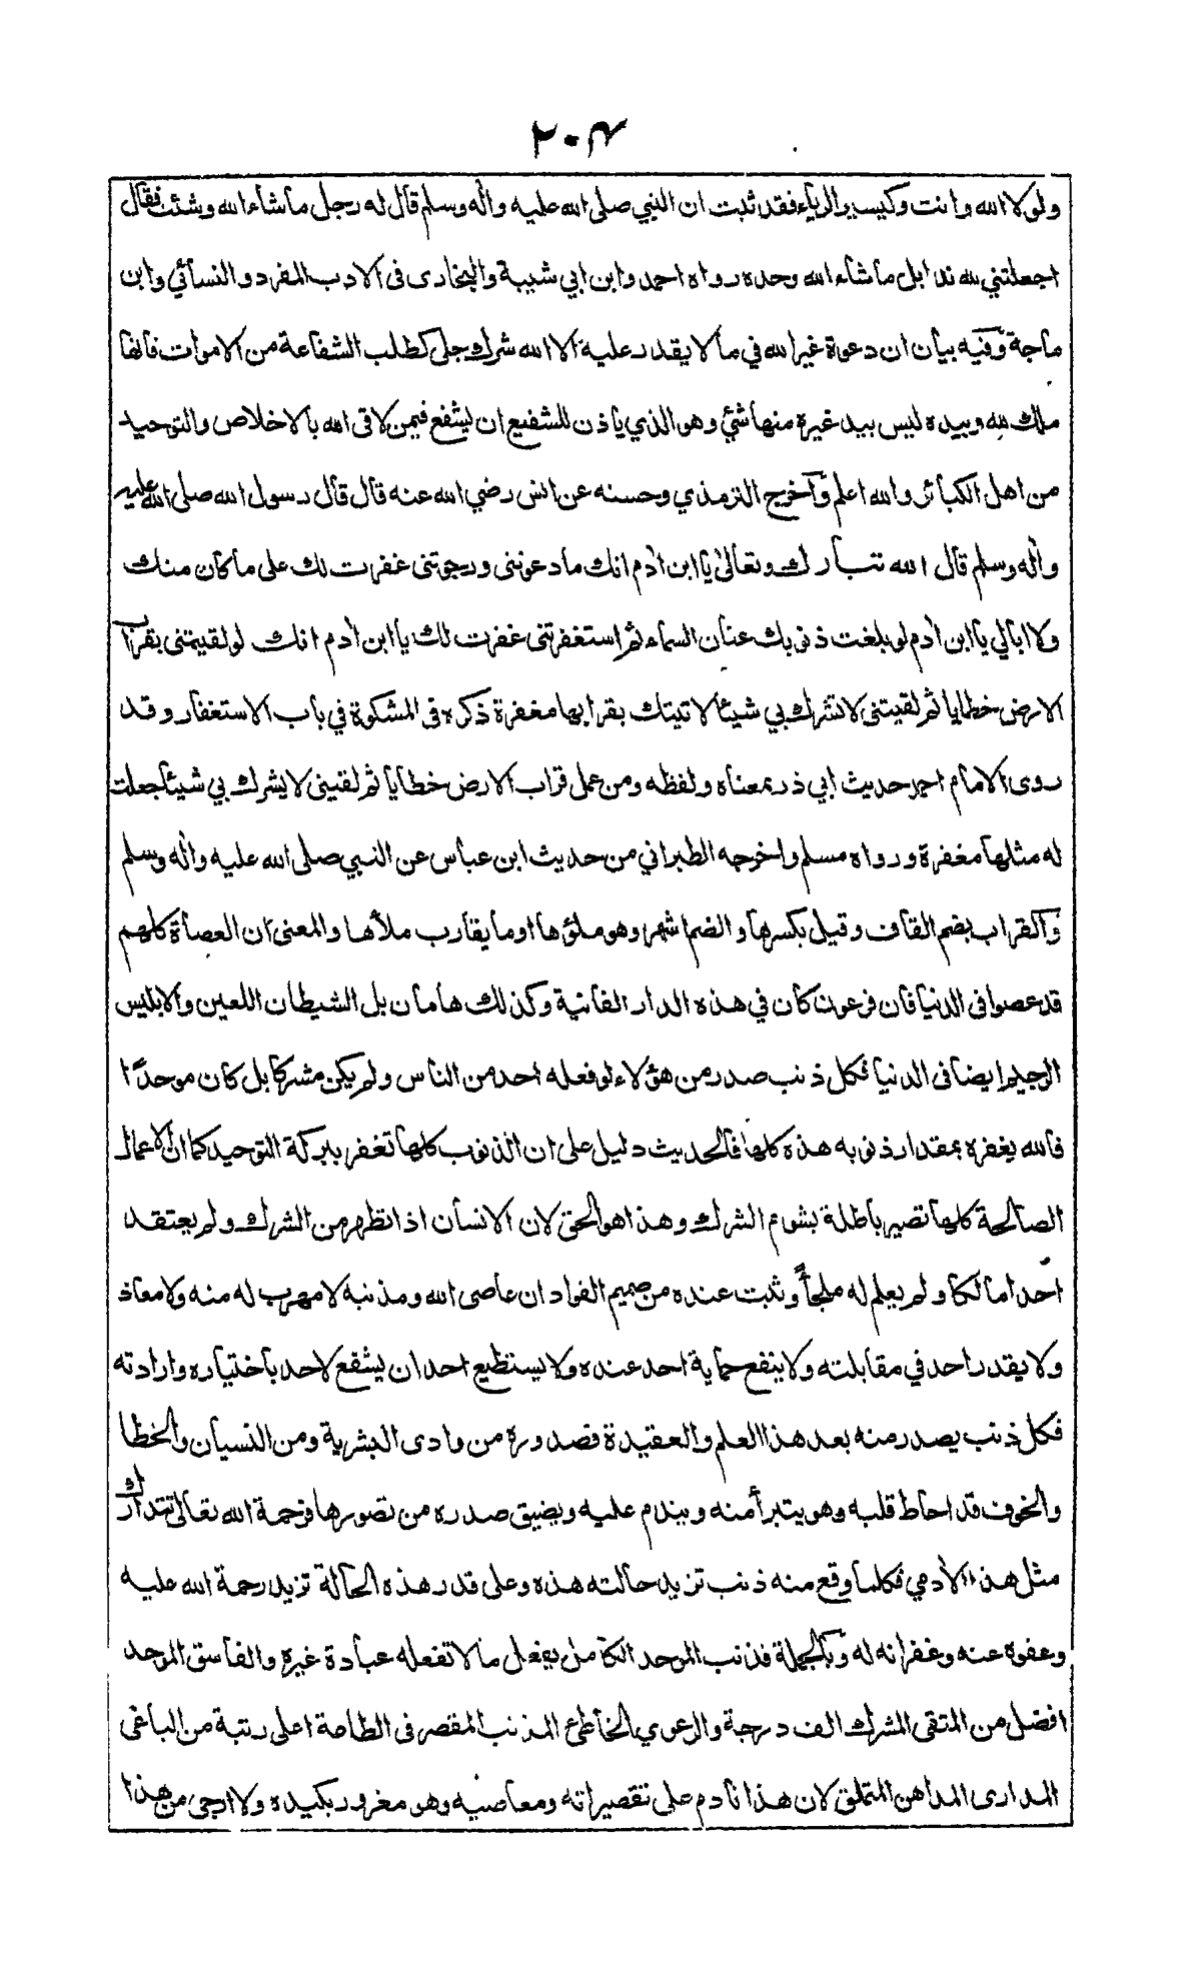 ٢٠٤
ولولا الله وانت وكيسير الرياء فقد ثبت ان النبي صلى الله عليه واٰله وسلم قال له رجل ما شاء الله وشئت فقال
اجعلتني لله ندا بل ما شاء الله وحده رواه احمد وابن ابي شيبة والبخارى فى الادب المفرد والنسائي وابن
ماجة وفيه بيان ان دعوة غير الله في ما لا يقدر عليه الا الله شرك جلى كطلب الشفاعة من الاموات فانها
ملك لله وبيده ليس بيد غيره منها شئ وهو الذي ياذن للشفيع ان يشفع فيمن لاقى الله بالاخلاص والتوحيد
من اهل الكبائر والله اعلم وآخرج الترمذي وحسنه عن انس رضي الله عنه قال قال رسول الله صلى الله عليه
واٰله وسلم قال الله تبارك وتعالىٰ يا ابن اٰدم انك ما دعوتنى ورجوتنى غفرت لك على ما كان منك
ولا ابالي يا ابن اٰدم لو بلغت ذنوبك عنان السماء ثم استغفرتنى غفرت لك يا ابن اٰدم انك لو لقيتنى بقراب
الارض خطايا ثم لقيتنى لا تشرك بي شيئا لاتيتك بقرابها مغفرة ذكره فى المشكوة في باب الاستغفار وقد
روى الامام احمد حديث ابي ذر بمعناه ولفظه ومن عمل قراب الارض خطايا ثم لقينى لا يشرك بي شيئا جعلت
له مثلها مغفرة ورواه مسلم واخرجه الطبراني من حديث ابن عباس عن النبي صلى الله عليه واٰله وسلم
وآلقراب بضم القاف وقيل بكسرها والضم اشهر وهو ملؤها او ما يقارب ملأها والمعنى ان العصاة كلهم
قد عصوا فى الدنيا فان فرعون كان في هذه الدار الفانية وكذلك هامان بل الشيطان اللعين والابليس
الرجيم ايضا فى الدنيا فكل ذنب صدر من هؤلاء لو فعله احد من الناس ولم يكن مشركا بل كان موحدًا
فالله يغفره بمقدار ذنوبه هذه كلها فالحديث دليل على ان الذنوب كلها تغفر ببركة التوحيد كما ان الاعمال
الصالحة كلها تصير باطلة بشوم الشرك وهذا هو الحق لان الانسان اذا تطهر من الشرك ولم يعتقد
احدا مالكا ولم يعلم له ملجأً وثبت عنده من صميم الفواد ان عاصى الله ومذنبه لا مهرب له منه ولا معاذ
ولا يقدر احد في مقابلته ولا ينفع حماية احد عنده ولا يستطيع احد ان يشفع لاحد باختياره وارادته
فكل ذنب يصدر منه بعد هذا العلم والعقيدة فصدوره من وادى البشرية ومن النسيان والخطا
والخوف قد احاط قلبه وهو يتبرأ منه ويندم عليه ويضيق صدره من تصورها فرحمة الله تعالىٰ تتدارك
مثل هذا الاٰدمي فكلما وقع منه ذنب تزيد حالته هذه وعلى قدر هذه الحالة تزيد رحمة الله عليه
وعفوه عنه وغفرانه له وبآلجملة فذنب الموحد الكامل يفعل ما لا تفعله عبادة غيره والفاسق الموحد
افضل من المتقى المشرك الف درجة والرعوي الخاطئ المذنب المقصر فى الطاعة اعلى رتبة من الباغى
المدارى المداهن المتملق لان هذا نادم على تقصيراته ومعاصيه وهو مغرور بكيده ولا ارجى من هذا